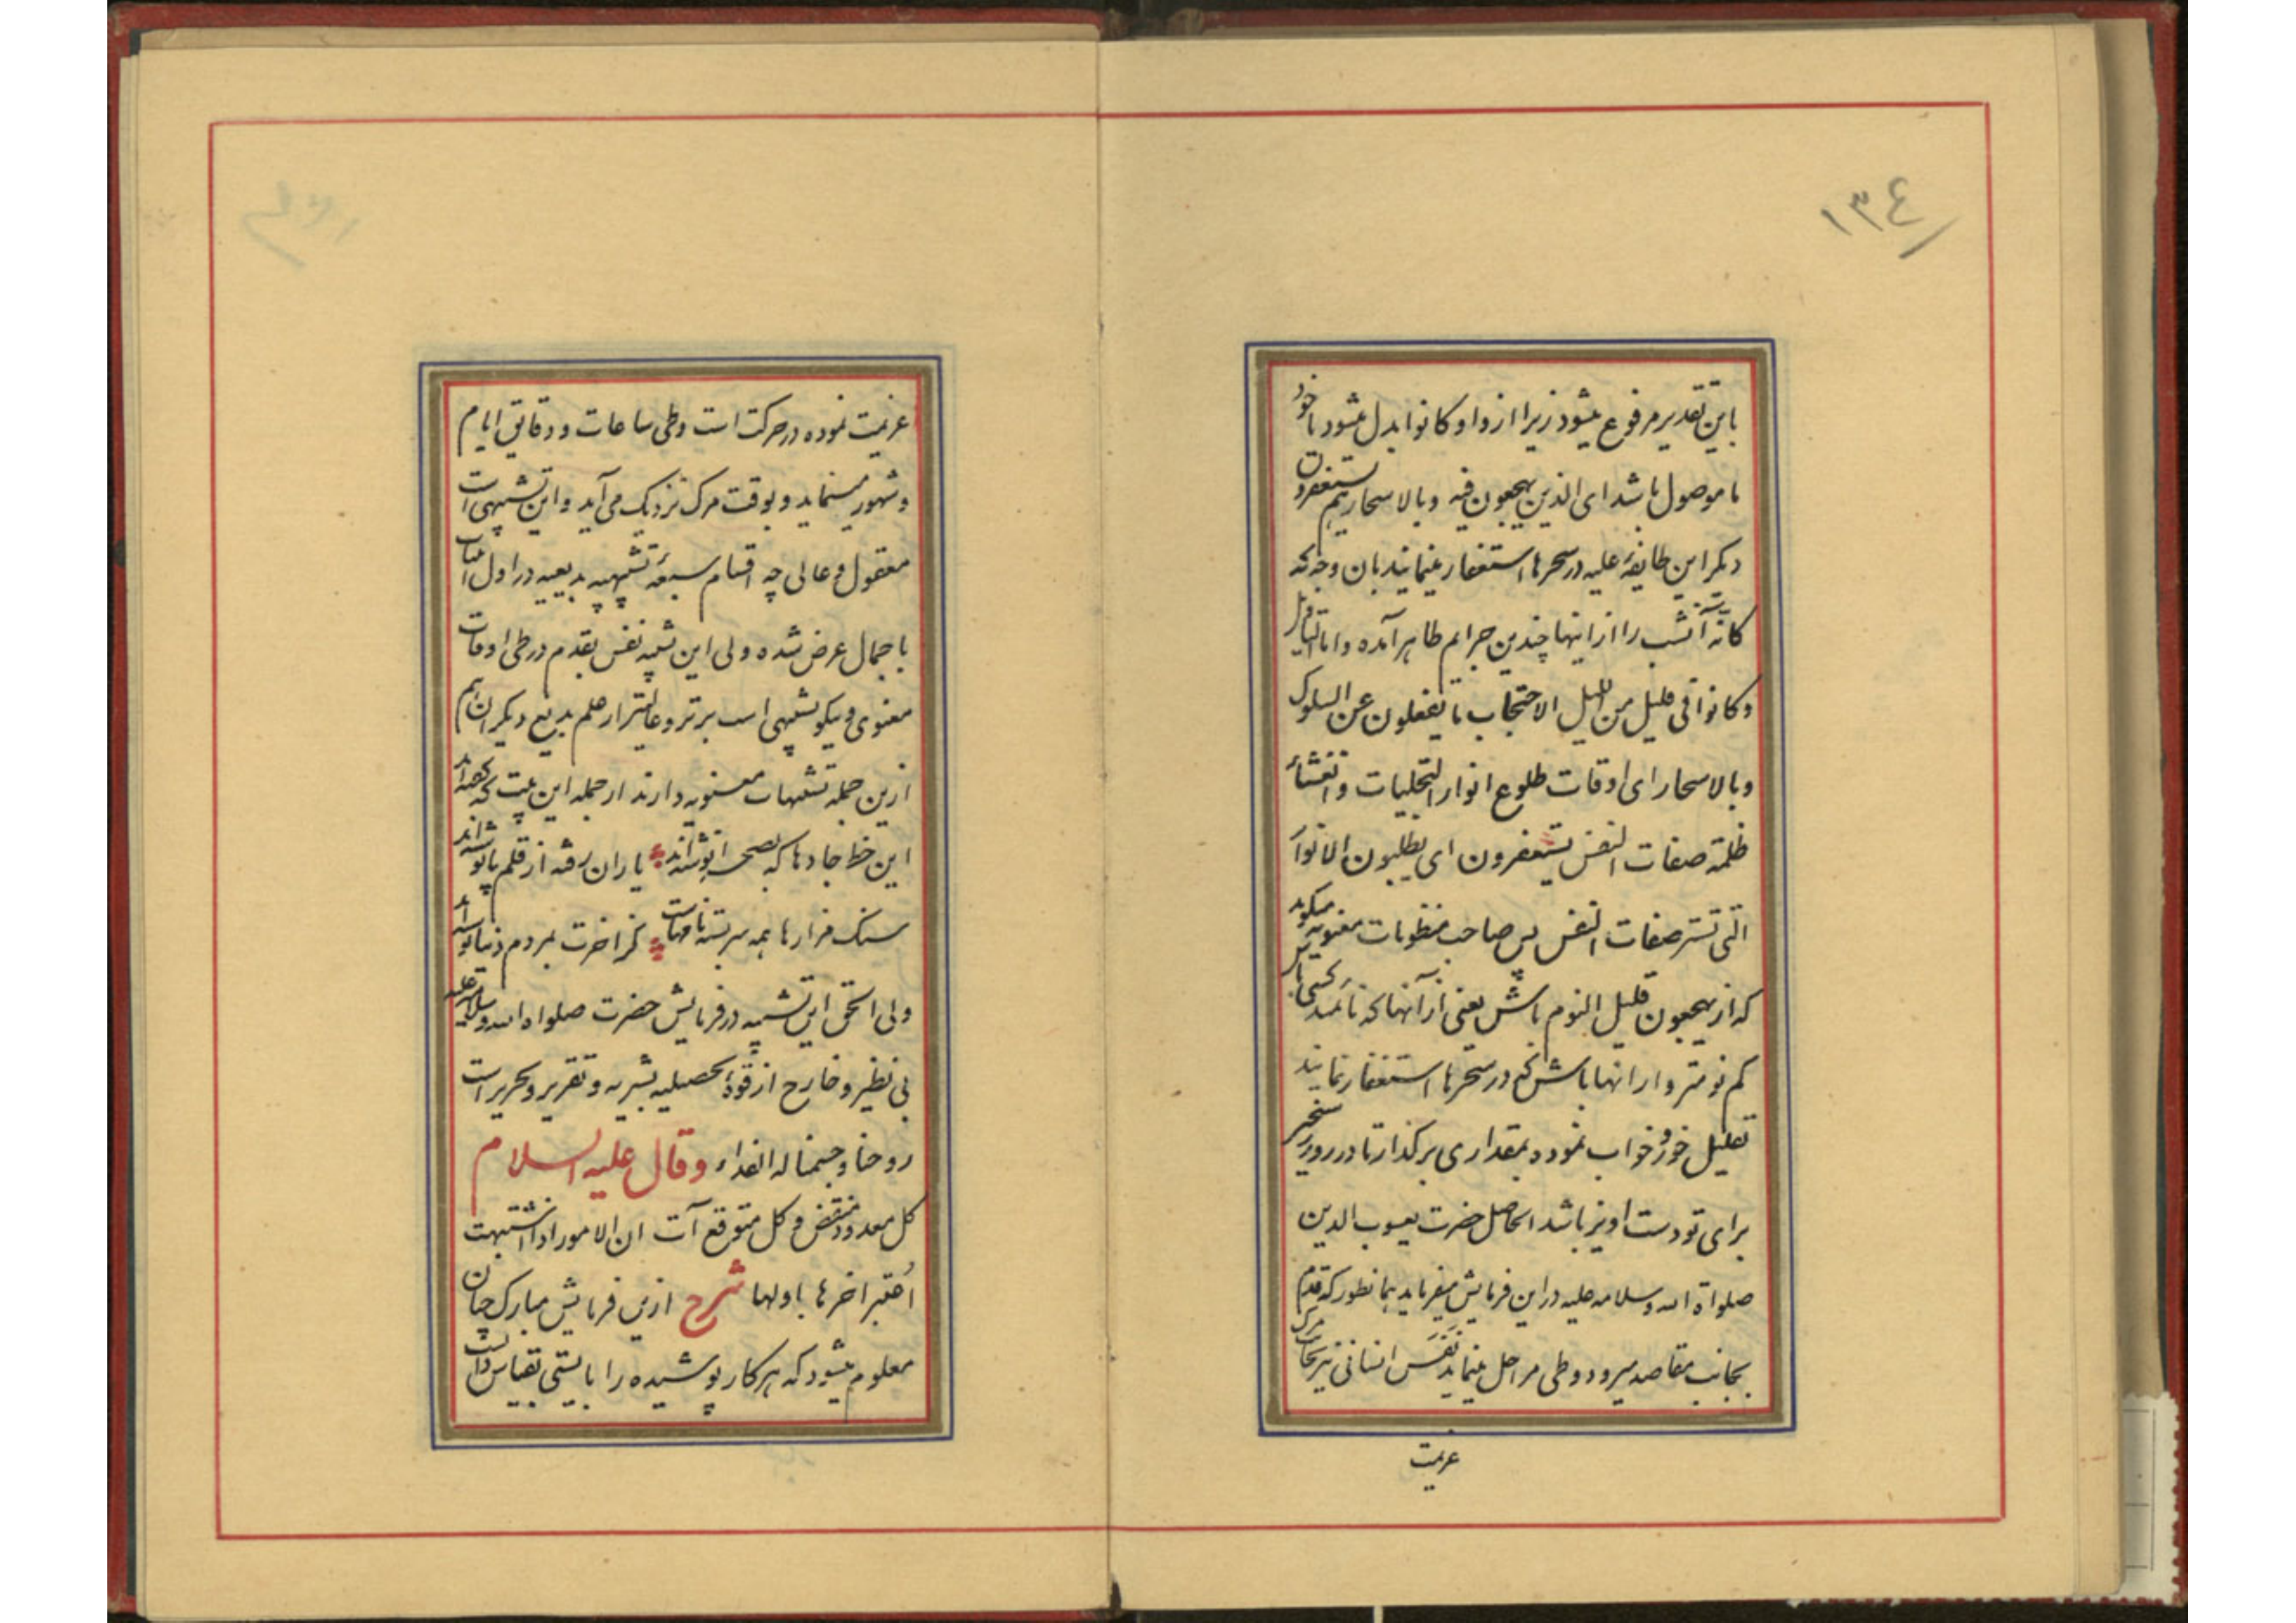 ۱۳۴
باین تقدیر مرفوع میشود زیرا از واو کانوا بدل میشود یا خود
ما موصول باشد ای الذین یهجعون فیه و بالاسحار هم یستغفرون
دیگر این طایفهٔ علیه در سحرها استغفار مینمایند بان وجه که
کانه آنشب را از اینها چندین جرایم ظاهر آمده و اما
وکانوا فی قلیل من اللیل الاحتجاب ما یغفلون عن السلوک
وبالاسحار ای اوقات طلوع انوار التجلیات و انقشأ
ظلمة صفات النفس یستغفرون ای یطلبون الانوار
التی تستر صفات النفس پس صاحب منظومات معنویه میکوید
که از یهجعون قلیل النوم باش یعنی از آنها که
کم نومتر و از انها باش که در سحرها استغفار نمایند
تقلیل خور و خواب نموده بمقداری برکذار تا در روز
برای تو دست اویز باشد الحاصل حضرت یعسوب الدین
صلواة الله وسلامه علیه در این فرمایش میفرماید همانطور که قدم
بجانب مقاصد میرود و طی مراحل مینماید نفس انسانی نیز بجانب مرک
عزیمت
عزیمت نموده در حرکت است وطی ساعات و دقایق ایام
وشهور مینماید و بوقت مرک نزدیک می آید و این تشبیهی است
معقول و عالی چه اقسام سبعهٔ تشبیهیه بدیعیه در اول
باجمال عرض شده ولی این تشبیه نفس بقدم در طی اوقات
معنوی و نیکو تشبیهی است برتر و عالیتر از علم بدیع دیکران هم
ازین جمله تشبیهات معنویه دارند از جمله این بیت که گفته اند
این خط جادها که بصحرا نوشته اند یاران رفته از قلم پا نوشته اند
سنک مزارها همه سربسته نامهاست کز اخرت بمردم دنیا نوشته اند
ولی الحق این تشبیه در فرمایش حضرت صلواة الله وسلامه علیه
بی نظیر و خارج از قوهٔ تحصیلیه بشریه و تقریر و تحریر است
روحنا وجسمنا له الفداء وقال علیه السلام
کل معدود منقض و کل متوقع آت ان الامور اذا اشتبهت
اُعتبر اخرها باولها شرح ازین فرمایش مبارک چنان
معلوم میشود که هر کار پوشیده را بایستی بقیاس دانست